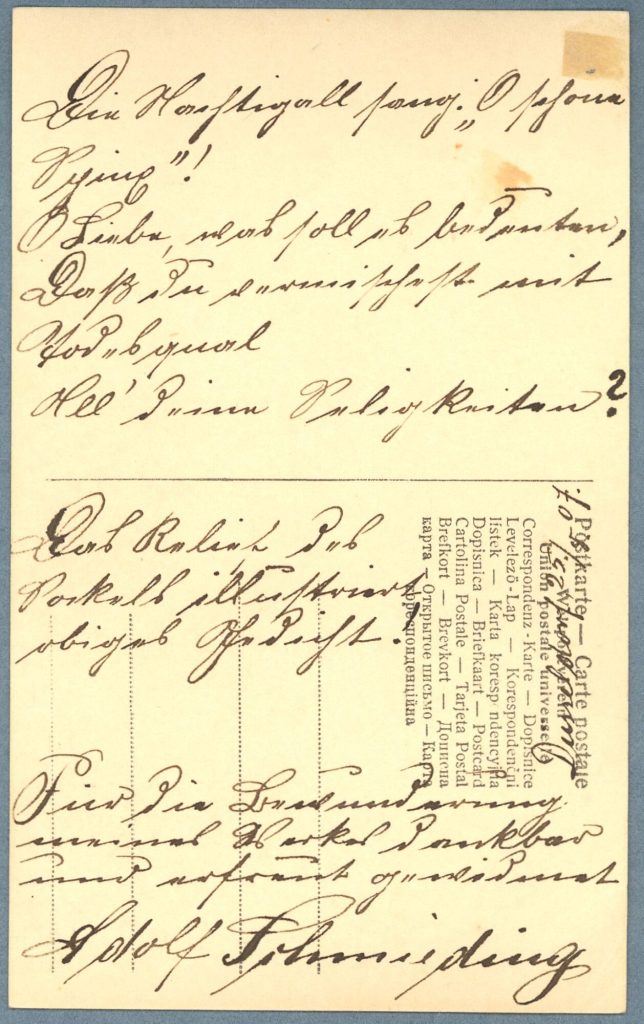 Die Nachtigall sang: „O schöne
Spinx"!
O Liebe, was soll es bedeuten,
Daß du vermischest mit
Todesqual
All' deine Seligkeiten?
Das Relief des
Sockels illustriert
obiges Gedicht.
Für die Bewunderung
meines Werkes dankbar
und erfreut gewidmet
Adolf Schmieding
Postkarte — Carte postale
Union postale universelle
Correspondenz-Karte — Dopisnice
Levelező-Lap — Korespondencni
listek — Karta korespondencyjna
Dopisnica — Briefkaart — Postcard
Cartolina Postale — Tarjeta Postal
Brefkort — Brevkort — Дописна
карта — Открытое письмо — Карта
корреспонденційна